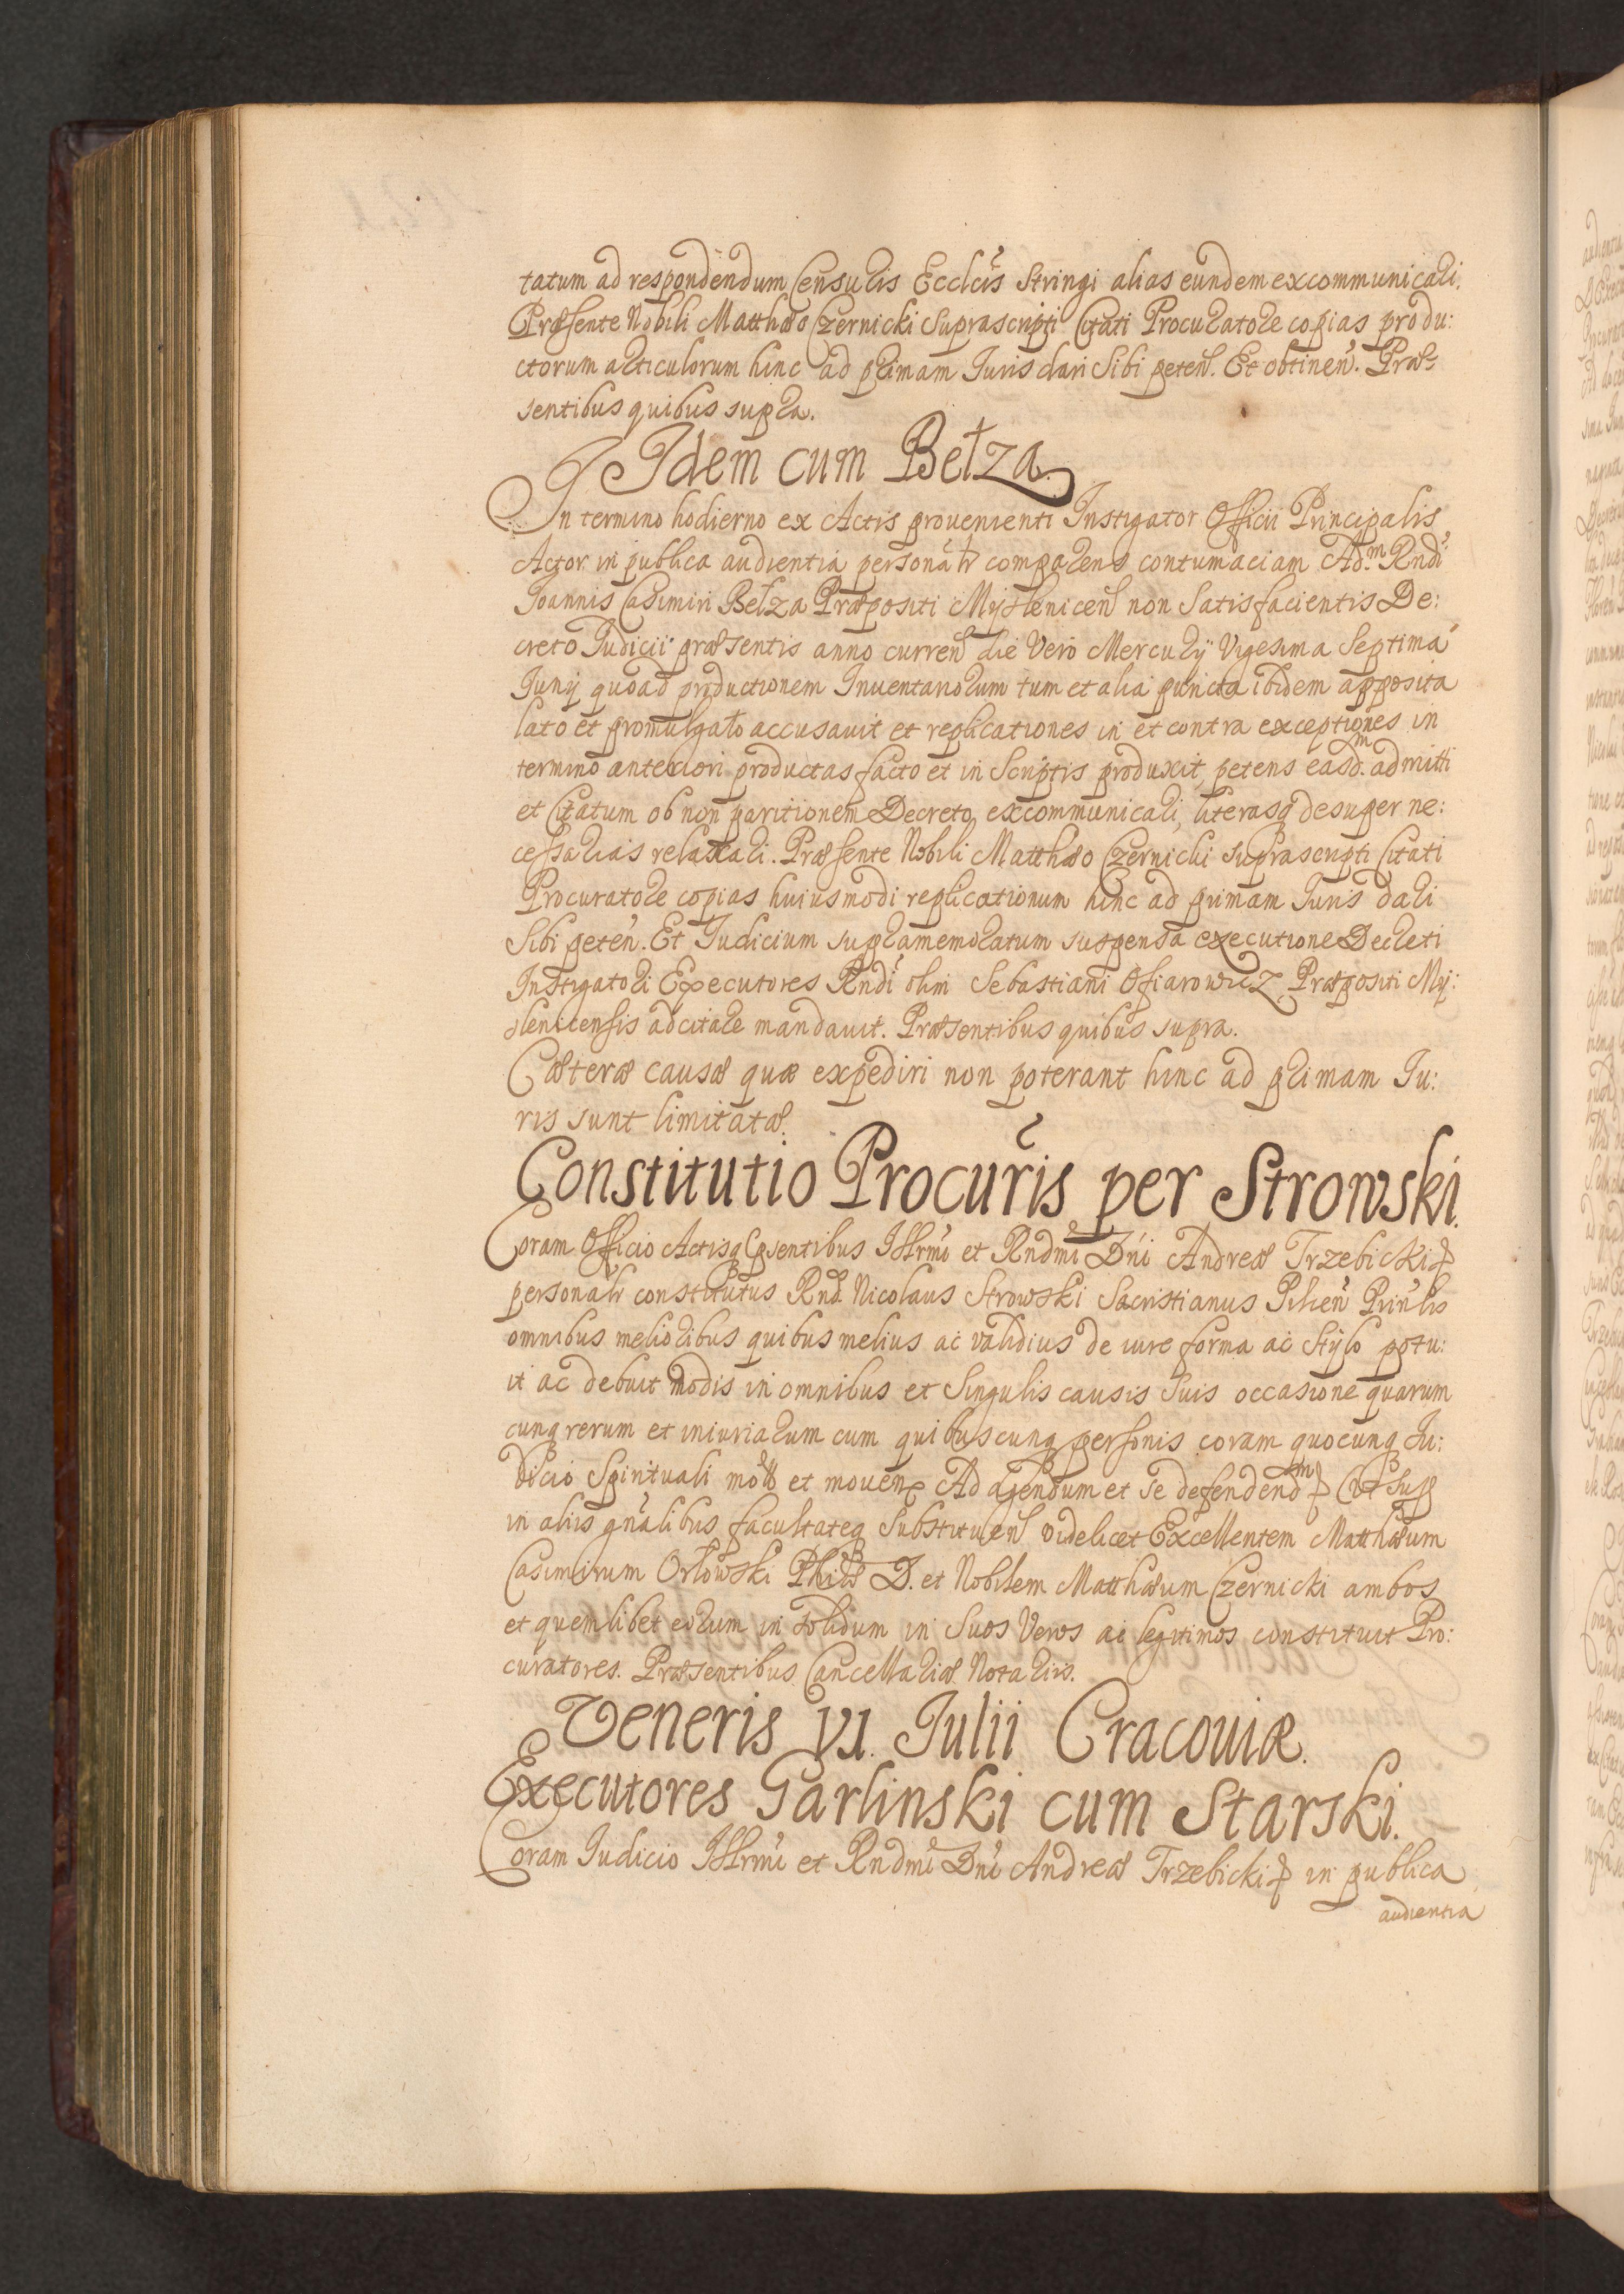 tatum ad respondendum Censuris Ecclcis stringi alias eundem excommunicari.
Præsente Nobili Matthæo Czernicki suprascripti Citati Procuratore copias produ:
ctorum articulorum hinc ad primam Juris dari sibi peten. Et obtinen. Præ:
sentibus quibus supra.
Idem cum Bełza.
In termino hodierno ex Actis provenienti Instigator Officii Principalis
Actor in publica audientia personalr comparens contumaciam Ad.m Rndi
Joannis Casimiri Bełza Præpositi Myslenicen non satisfacientis De:
creto Judicii præsentis anno curren die vero Mercurij Vigesima Septima
Junij quoad productionem Inventariorum tum et alia puncta ibidem apposita
lato et promulgato accusavit et replicationes in et contra exceptiones in
termino anteriori productas facto et in scriptis produxit, petens easd.m admitti
et Citatum ob non paritionem Decreto excommunicari, literasq desuper ne:
cessarias relaxari. Præsente Nobili Matthæo Czernicki suprascripti Citati
Procuratore copias huiusmodi replicationum hinc ad primam Juris dari
sibi peten. Et Judicium supramemoratum suspensa executione Decreti
Instigatori Executores Rndi olim Sebastiani Ofiarowicz Præpositi My:
slenicensis adcitare mandavit. Præsentibus quibus supra.
Cæteræ causæ quæ expediri non poterant hinc ad primam Ju:
ris sunt limitatæ.
Constitutio Procuris per Strowski.
Coram Officio Actisq psentibus Illrmi et Rndmi Dni Andreæ Trzebicki
personalr constitutus Rnd. Nicolaus Strowski Sacristianus Pilien Prinlis
omnibus melioribus quibus melius ac validius de iure forma ac stylo potu:
it ac debuit modis in omnibus et singulis causis suis occasione quarum
cunq rerum et iniuriarum cum quibuscunq personis coram quocunq Ju:
dicio Spirituali et moven Ad agendum et se defendendm
in aliis gnalibus facultateq substituen videlicet Excellentem Matthæum
Casimirum Orłowski Phiæ D. et Nobilem Matthæum Czernicki ambos
et quemlibet eorum in solidum in suos veros ac legitimos constituit Pro:
curatores. Præsentibus Cancellariæ Notariis.
Veneris VI. Julii Cracoviæ.
Executores Garlinski cum Starski.
Coram Judicio Illrmi et Rndmi Dni Andreæ Trzebicki in publica
audientia